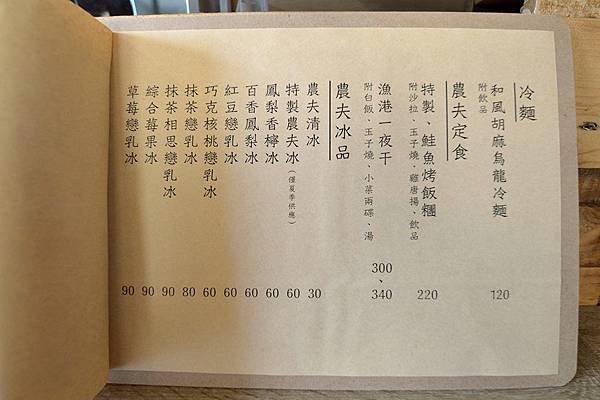 冷麵
和風胡麻烏龍冷麵 120
附飲品
農夫定食
特製、鮭魚烤飯糰 220
附沙拉、玉子燒、雞唐揚、飲品
漁港一夜干 300、340
附白飯、玉子燒、小菜兩碟、湯
農夫冰品
農夫清冰 30
特製農夫冰(僅夏季供應) 60
鳳梨香檸冰 60
百香鳳梨冰 60
紅豆戀乳冰 60
巧克核桃戀乳冰 60
抹茶戀乳冰 80
抹茶相思戀乳冰 90
綜合莓果冰 90
草莓戀乳冰 90